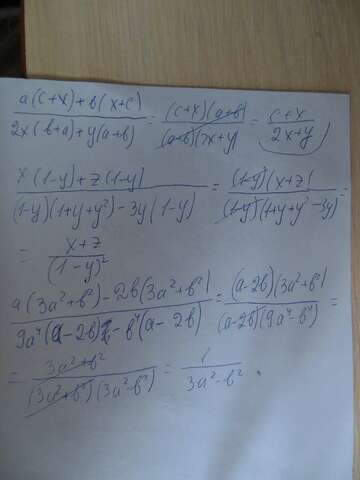 a(c+x)+b(x+c) / 2x(b+a)+y(a+b) = (c+x)(a+b) / (a+b)(2x+y) = c+x / 2x+y
x(1-y)+z(1-y) / (1-y)(1+y+y²)-3y(1-y) = (1-y)(x+z) / (1-y)(1+y+y²-3y) =
= x+z / (1-y)²
a(3a²+b²)-2b(3a²+b²) / 9a⁴(a-2b)-b⁴(a-2b) = (a-2b)(3a²+b²) / (a-2b)(9a⁴-b⁴) =
= 3a²+b² / (3a²+b²)(3a²-b²) = 1 / 3a²-b².